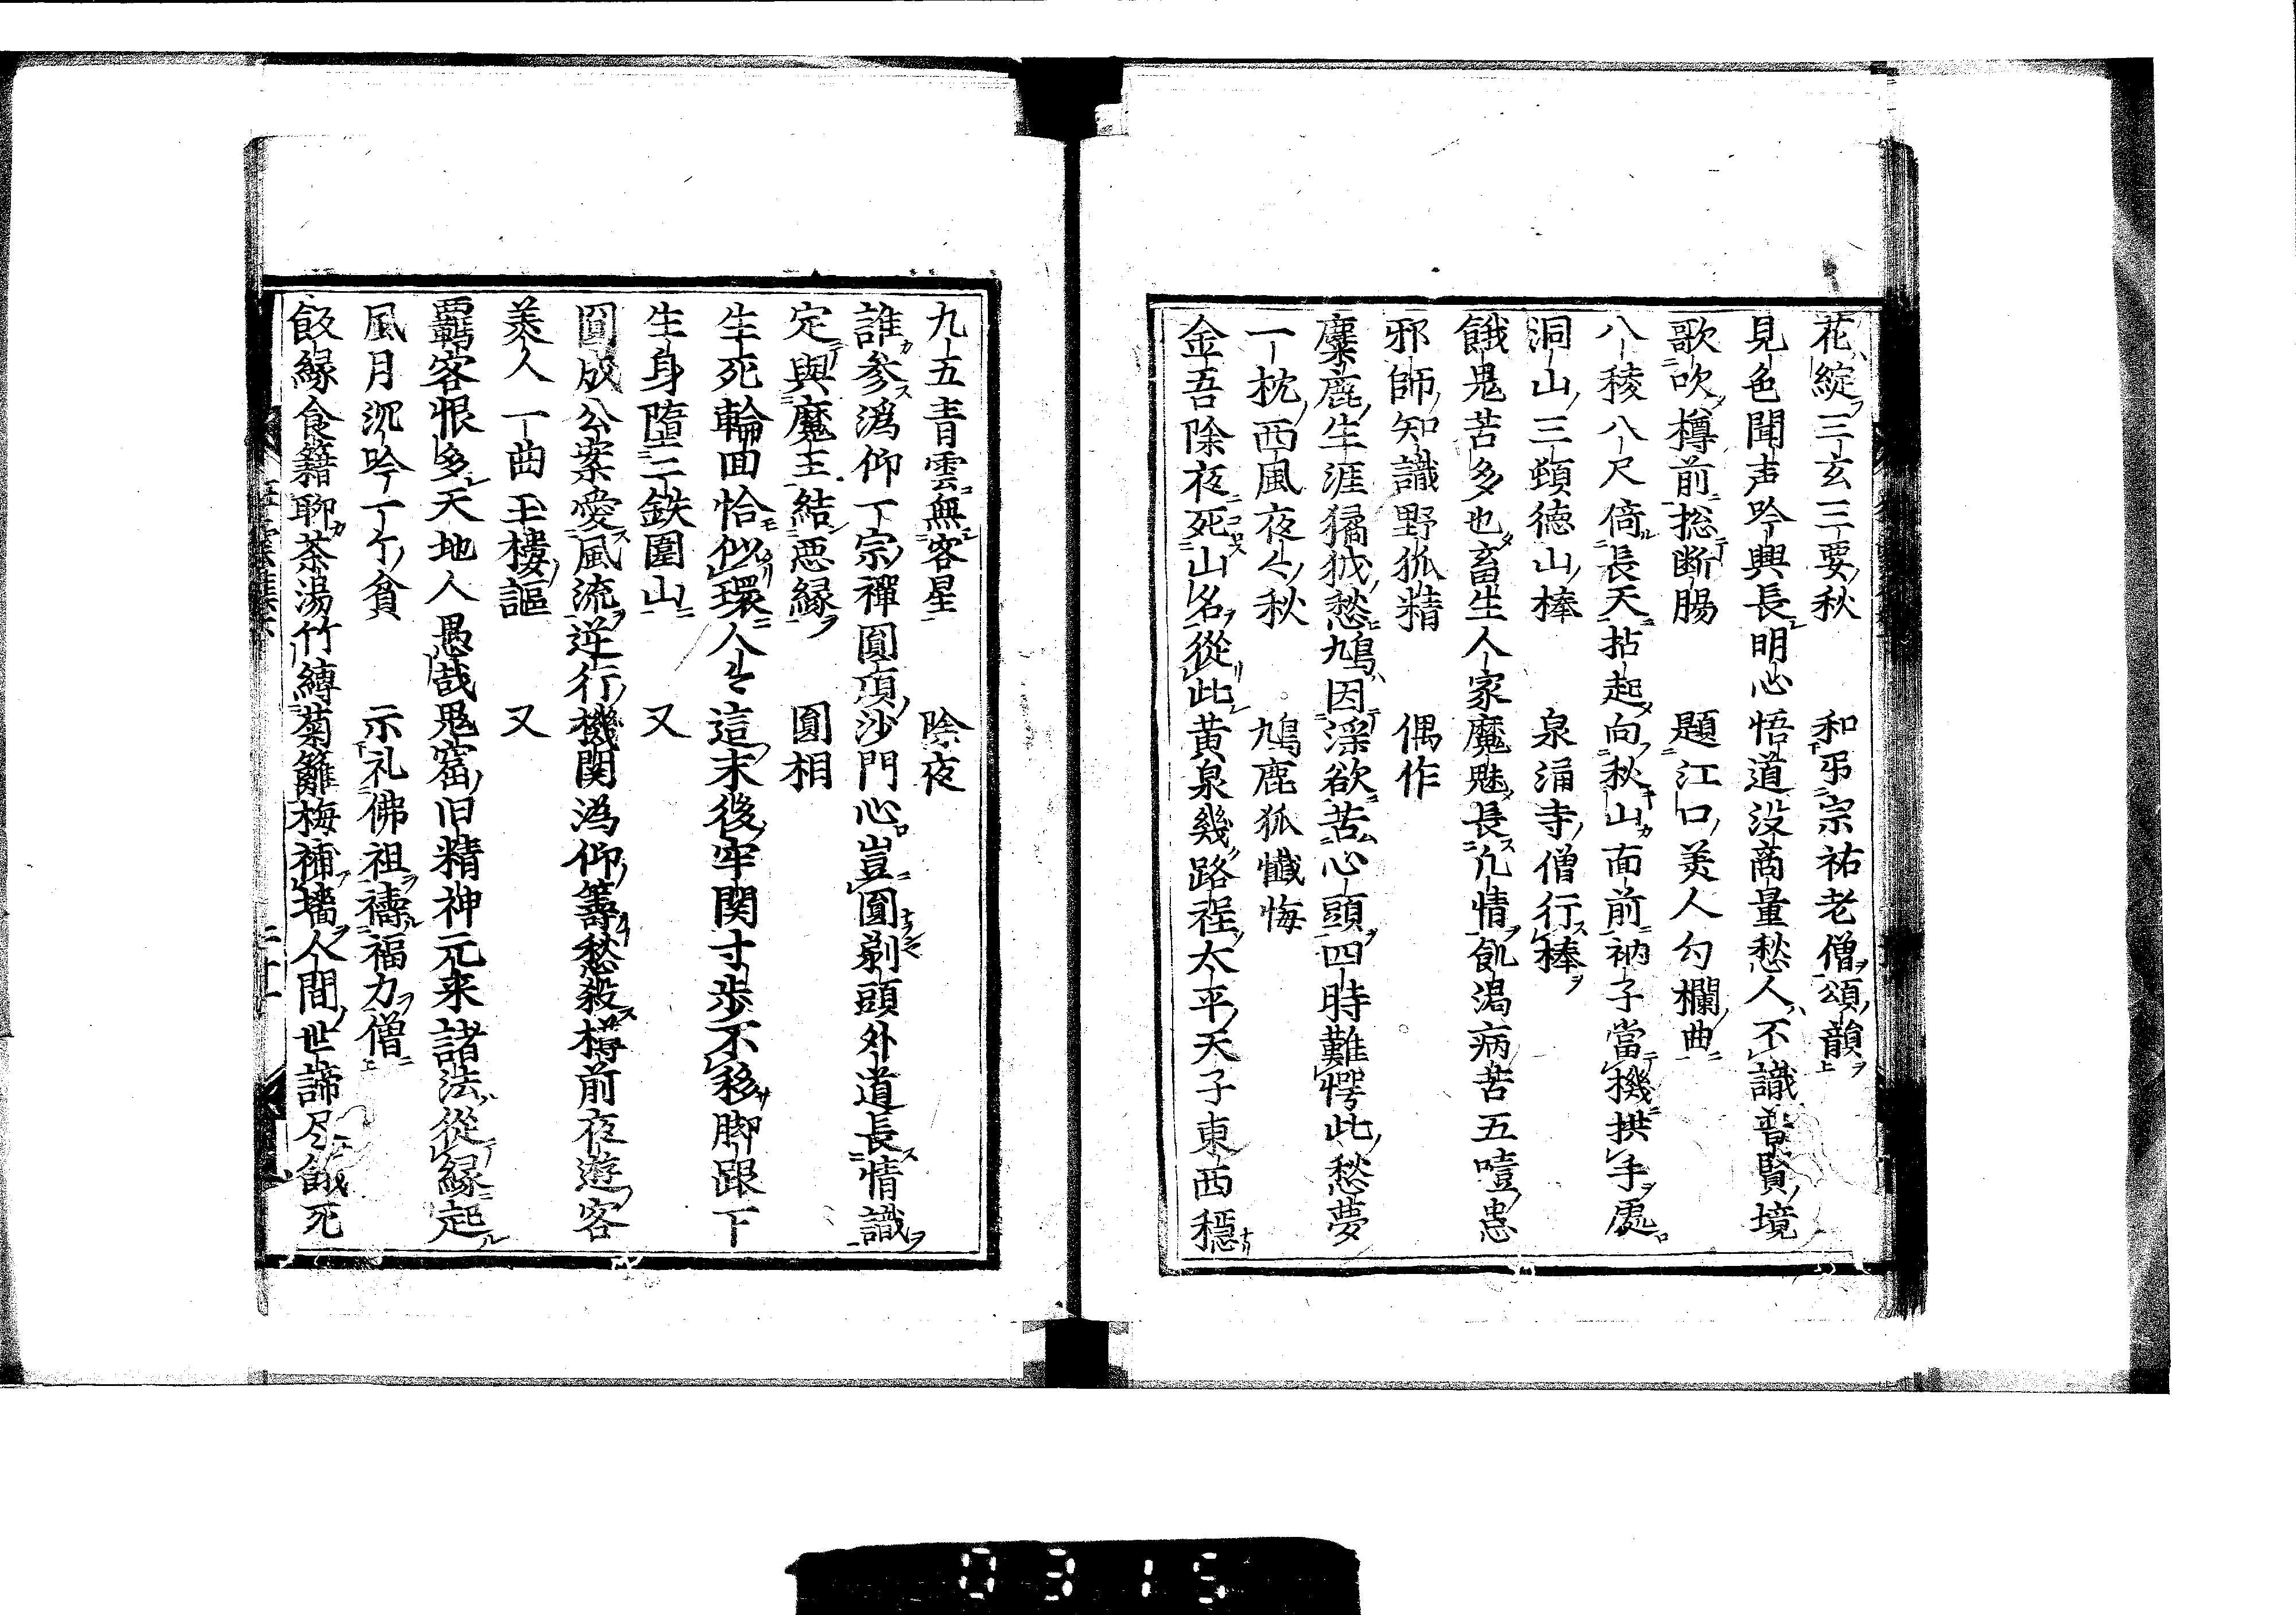 花綻三玄三要秋　和弔宗祐老僧頌韻
見色聞声吟興長明心悟道没商量愁人不識普賢境
歌吹樽前捴断腸　題江口美人勾欄曲
八稜八尺倚長天拈起向秋山面前衲子當機拱手處
洞山三頓徳山棒　泉涌寺僧行棒
餓鬼苦多也畜生人家魔魅長凡情飢渇病苦五噎患
邪師知識野狐精　偶作
麋鹿生涯猯狘愁鳩因淫欲苦心頭四時難愕此愁夢
一枕西風夜〻秋　鳩鹿狐懺悔
金吾除夜死山名從此黄泉幾路程太平天子東西穏
九五青雲無客星　除夜
誰参潙仰丁宗禪圓頂沙門心豈圓剃頭外道長情識
定與魔王結悪縁　圓相
生死輪回恰似環人〻這末後牢関寸歩不移脚跟下
生身堕二鉄圍山　又
圓成公案愛風流逆行機関潙仰籌愁殺樽前夜遊客
美人一曲玉樓謳　又
羈客恨多天地人愚哉鬼窟旧精神元来諸法從縁起
風月沉吟一ケ貧　示礼佛祖禱福力僧
飯縁食籍聊茶湯竹縛菊籬梅補墻人間世諦尽餓死